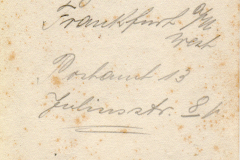 Frankfurt a/M
West
Postamt 13
Juliusstr. 8